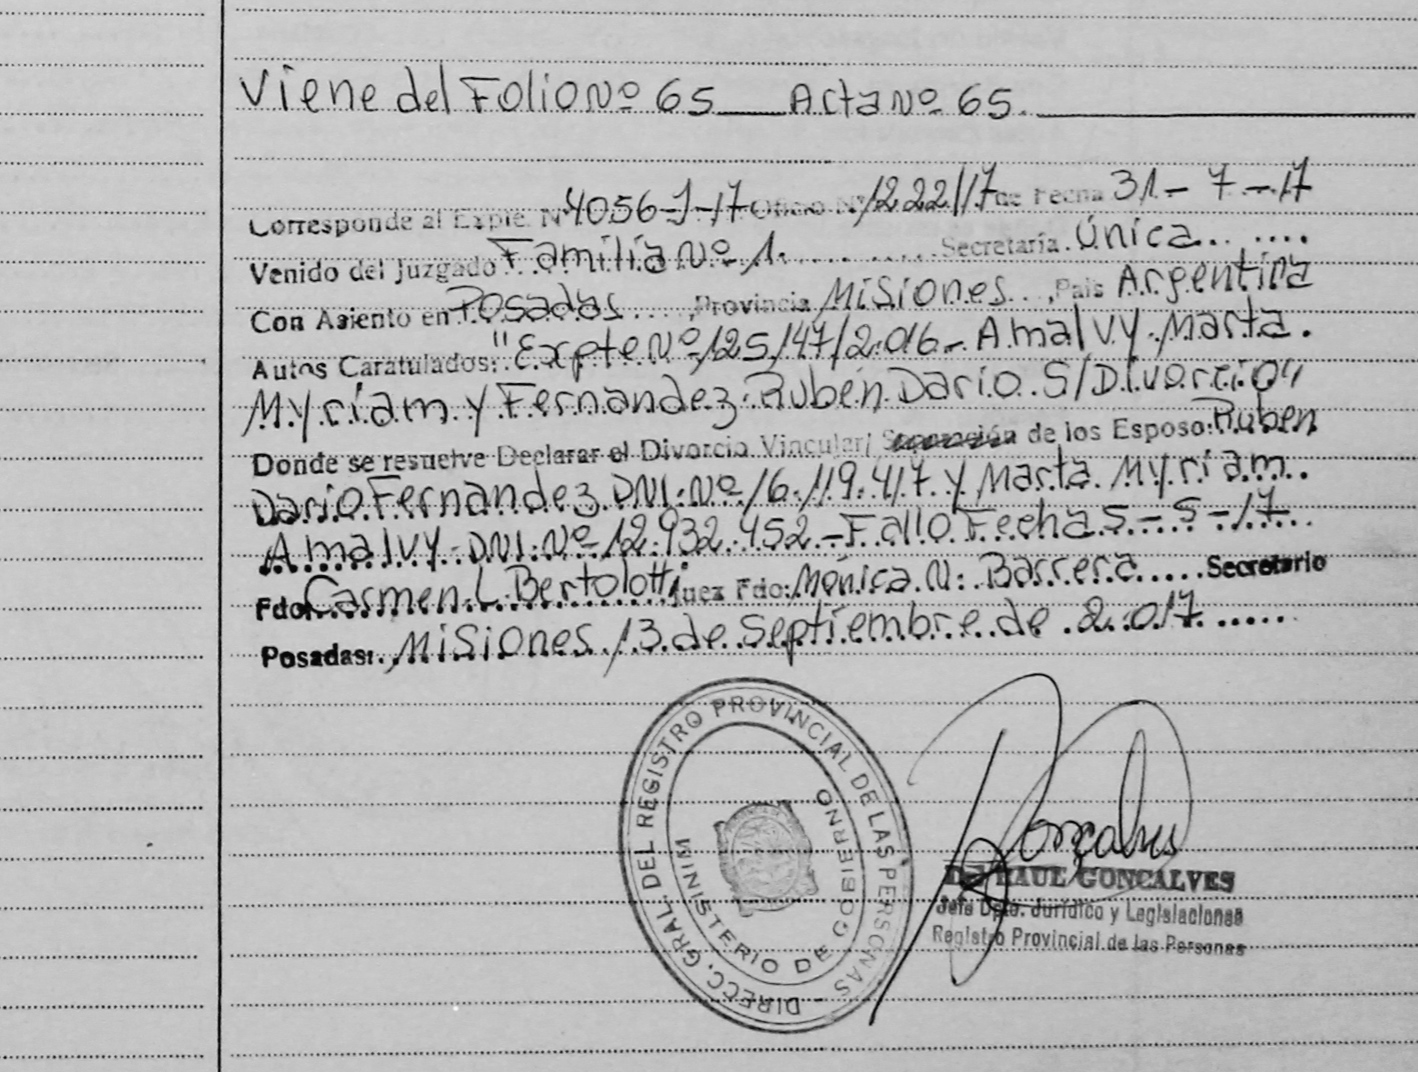 Viene del Folio Nº 65 Acta Nº 65.
Corresponde al Expte. Nº 4056-J-17 Oficio Nº 1222/17 de Fecha 31-7-17
Venido del Juzgado Familia Nº 1. Secretaría Única
Con Asiento en Posadas, Provincia Misiones, País Argentina
Autos Caratulados: "Expte Nº 125147/2.016- Amalvy Marta
Myriam y Fernandez Rubén Dario S/Divorcio"
Donde se resuelve Declarar el Divorcio Vincular/ Separación de los Esposo: Ruben
Dario Fernandez DNI. Nº 16.119.417 y Marta Myriam
Amalvy-DNI. Nº 12.932.452-Fallo Fecha 5-5-17
Fdo. Carmen L. Bertolotti Juez Fdo: Mónica N. Barrera Secretario
Posadas: Misiones 13 de Septiembre de 2.017
DIRECC. GRAL. DEL REGISTRO PROVINCIAL DE LAS PERSONAS -
MINISTERIO DE GOBIERNO
Gonçalves
RAUL GONCALVES
Jefe Dpto. Jurídico y Legislaciones
Registro Provincial de las Personas